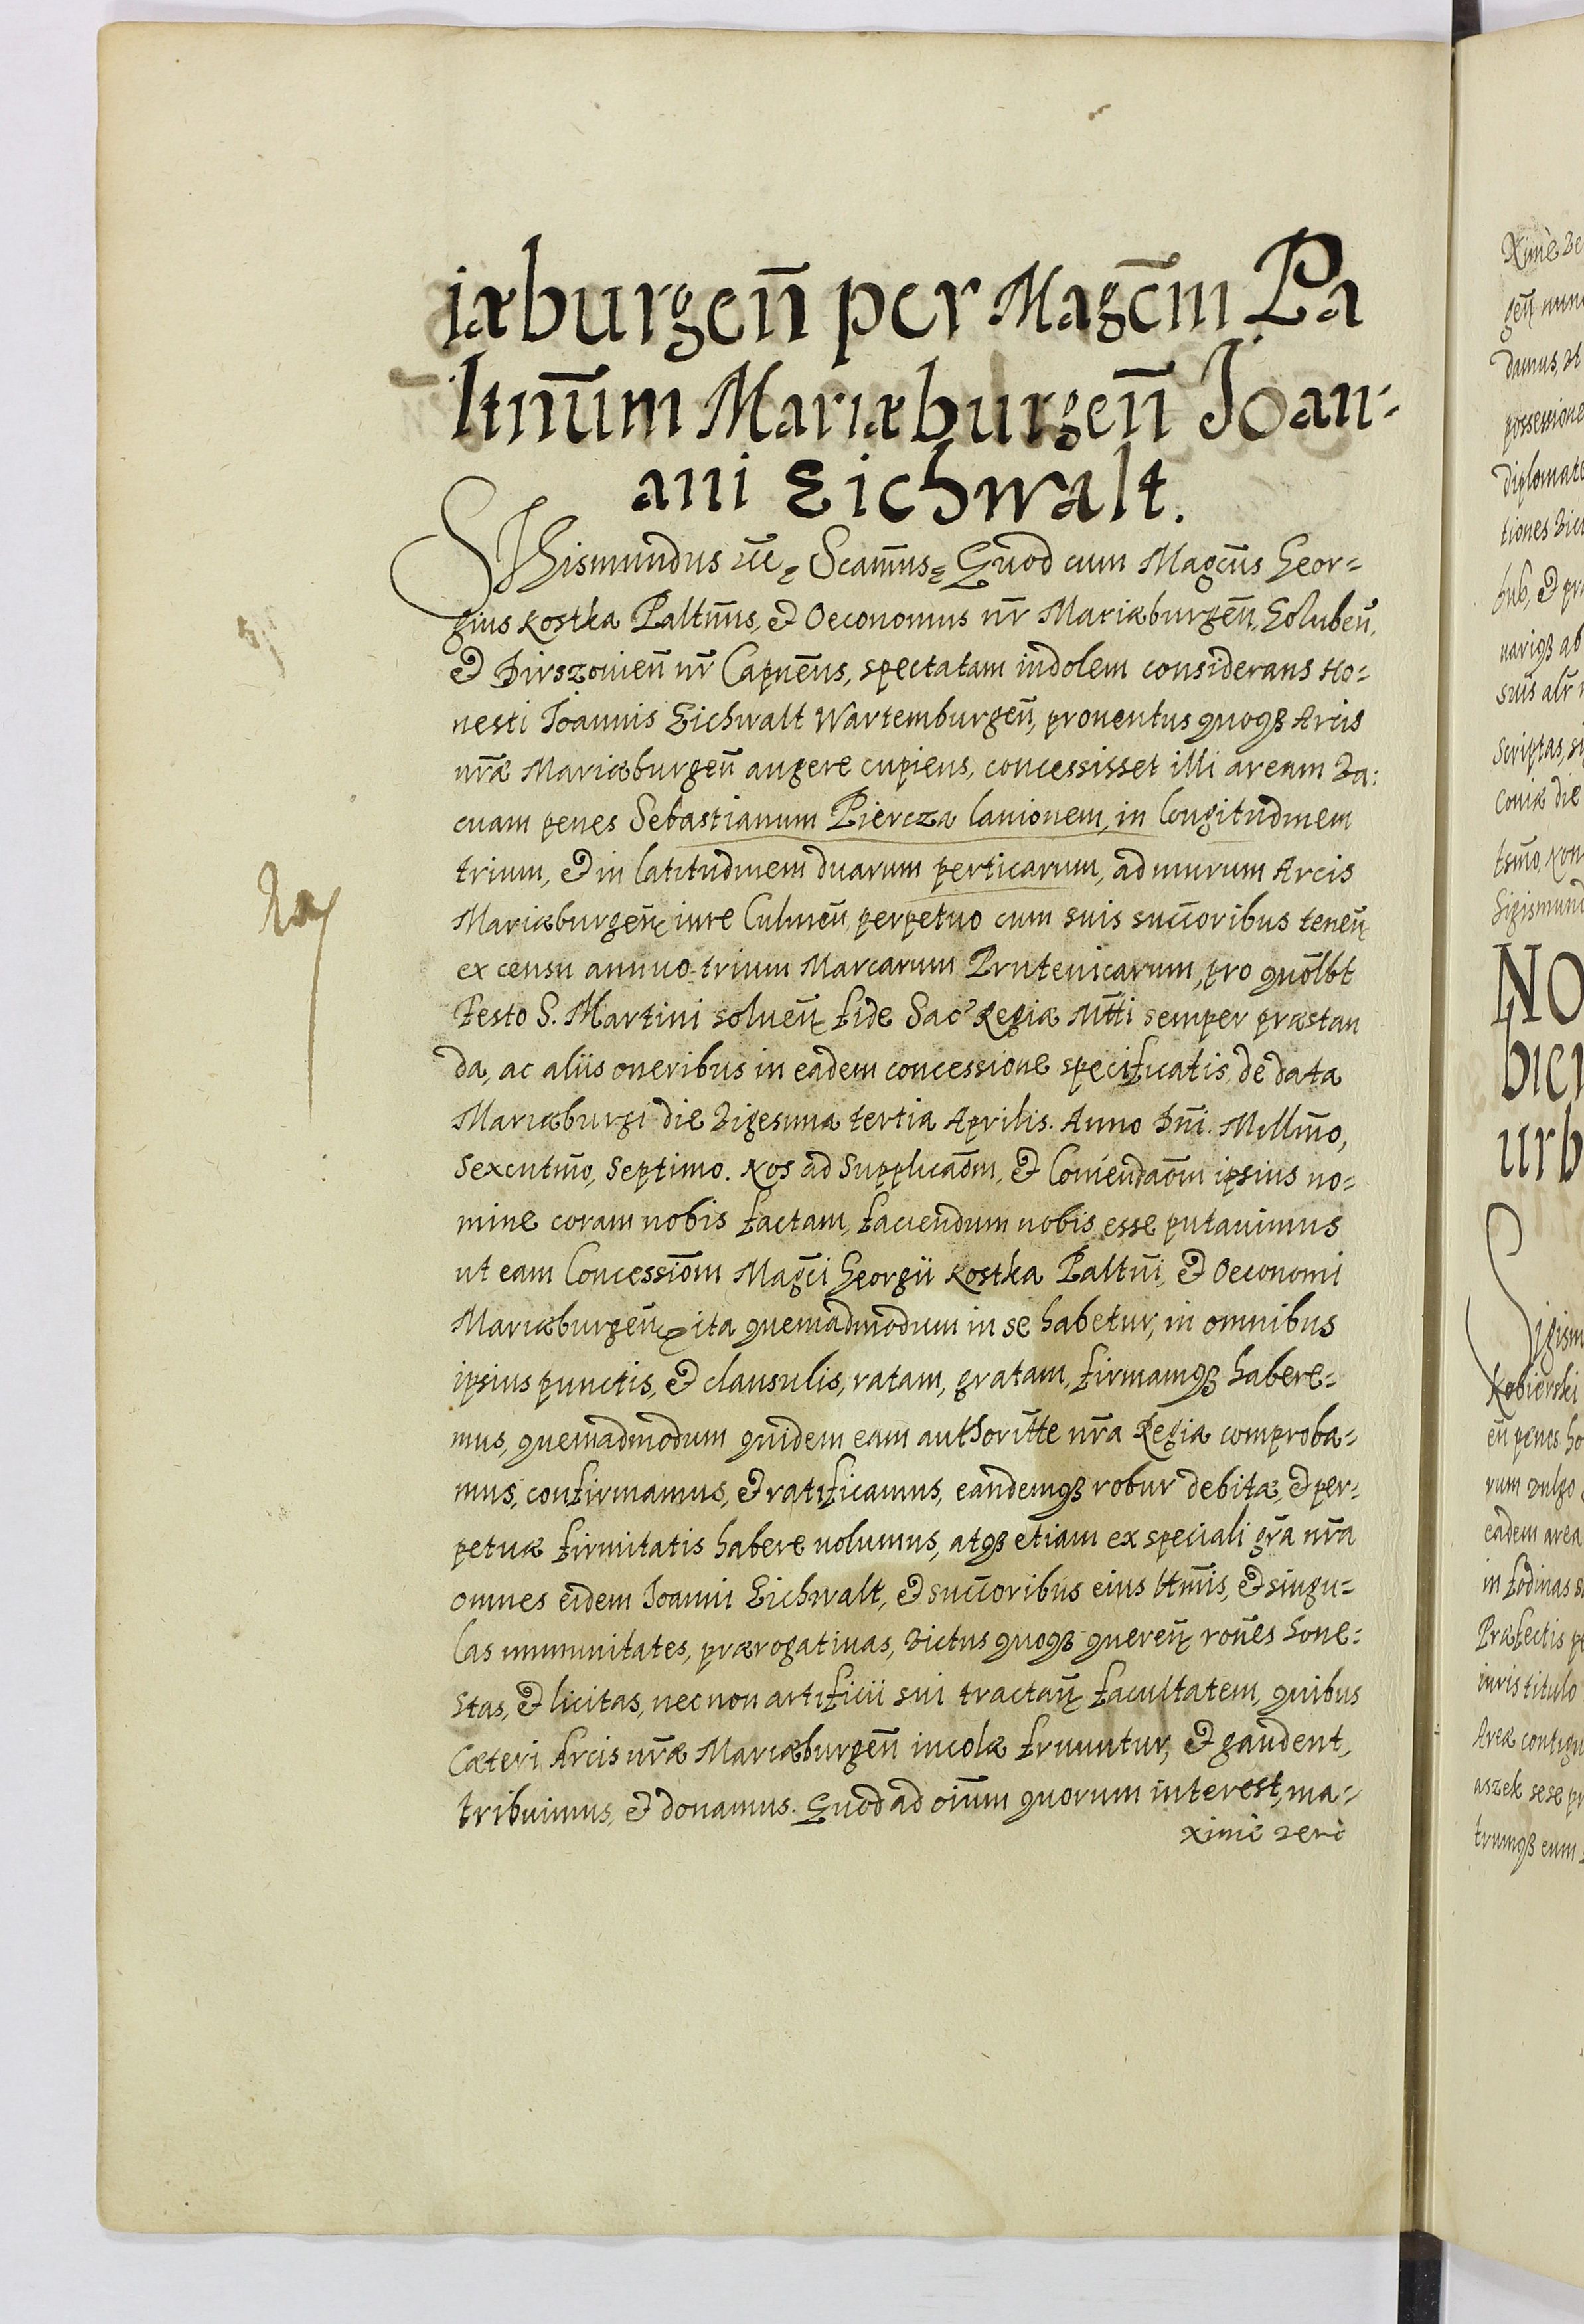 iæburgen̄ per Magc̄m Pa
ltnu̅m Mariæburgen̄ Joan-
ani Eichwalt.
SIgismundus etc̄ Scam̄us Quod cum Magcūs Geor=
gius Kostka Paltnūs, et Oeconomus nr̄ Mariæburgen̄, Goluben̄,
et Dirszovien̄ nr̄ Capnēus, spectatam indolem considerans Ho=
nesti Joannis Eichwalt Wartemburgen̄, prouentus quoqȝ Arcis
nr̄æ Mariæburgen̄ augere cupiens, concessisset illi aream va:
cuam penes Sebastianum Piercza lanionem, in longitudinem
trium, et in latitudinem duarum perticarum, ad murum Arcis
Mariæburgen̄, iure Culmen̄ perpetuo cum suis succ̄oribus tenen̄
ex censu annuo trium Marcarum Prutenicarum, pro quōlbt
Festo S. Martini soluen̄ fide Sac Regiæ Mtt̄i semper præstan
da, ac aliis oneribus in eadem concessione specificatis, de data
Mariæburgi die vigesima tertia Aprilis. Anno Dn̄i. Millm̄o,
Sexcentm̄o, Septimo. Nos ad Supplicaōm, et Comendaōm ipsius no=
mine coram nobis factam, faciendum nobis esse putauimus
ut eam Concessiōm Magc̄i Georgii Kostka Paltnī, et Oeconomi
Mariæburgen̄, ita quemadmodum in se habetur, in omnibus
ipsius punctis, et clausulis, ratam, gratam, firmamqȝ habere=
mus, quemadmodum quidem eam authoritt̄e nr̄a Regia comproba=
mus, confirmamus, et ratificamus, eandemqȝ robur debitæ, et per=
petuæ firmitatis habere uolumus, atqȝ etiam ex speciali gr̄a nr̄a
omnes eidem Joanni Eichwalt, et succ̄oribus eius ltm̄is, et singu=
las immunitates, prærogatiuas, victus quoqȝ queren̄ roūes hone=
stas, et licitas, necnon artificii sui tractan̄ facultatem, quibus
Cæteri Arcis nr̄æ Mariæburgen̄ incolæ fruuntur, et gaudent,
tribuimus, et donamus. Quod ad oīum quorum interest, ma=
xime vero